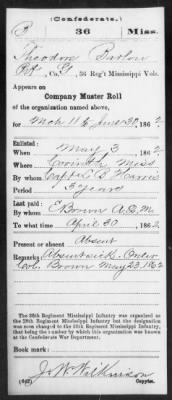 (Confederate.)
B 36 Miss.
Theodore Barlow
Pvt, Co. G, 36 Reg't Mississippi Vols.
Appears on
Company Muster Roll
of the organization named above,
for Mch 11 to June 30, 1862
Enlisted:
When May 3, 1862
Where Corinth Miss
By whom Capt. B Harris
Period 3 years
Last paid:
By whom E Brown A.Q.M.
To what time April 30, 1862
Present or absent Absent
Remarks: Absent sick. Order
Col. Brown May 23, 1862
The 36th Regiment Mississippi Infantry was organized as
the 29th Regiment Mississippi Infantry but the designation
was changed to the 36th Regiment Mississippi Infantry, that
being the number by which this organization was known at
the Confederate War Department.
Book mark:
J. W. Wilkinson
(642) Copyist.